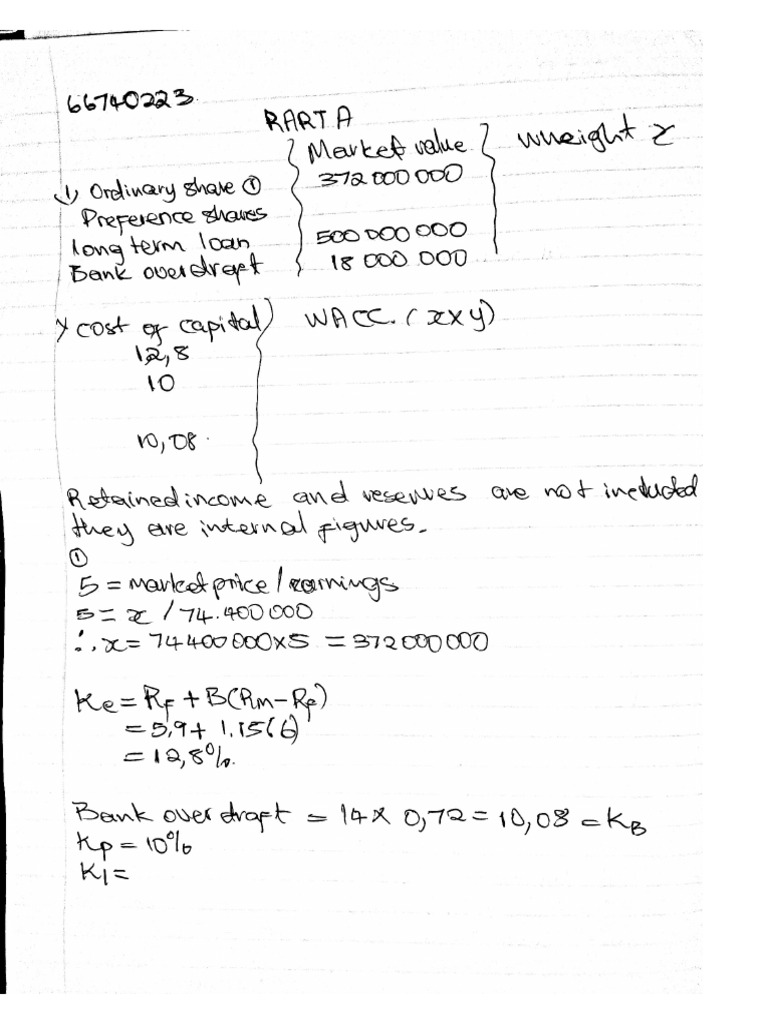 66740223.
RART A
Market value wheight x
1, Ordinary share ① 372 000 000
Preference shares
long term loan 500 000 000
Bank overdraft 18 000 000
y cost of capital WACC. (x×y)
12,8
10
10,08.
Retained income and reserves are not included
they are internal figures.
①
5 = market price / earnings
5 = x / 74.400 000
∴ x = 74400 000×5 = 372 000 000
Ke = RF + B(Rm-RF)
= 5,9 + 1.15(6)
= 12,8%.
Bank overdraft = 14 × 0,72 = 10,08 = KB
Kp = 10%
Kl =